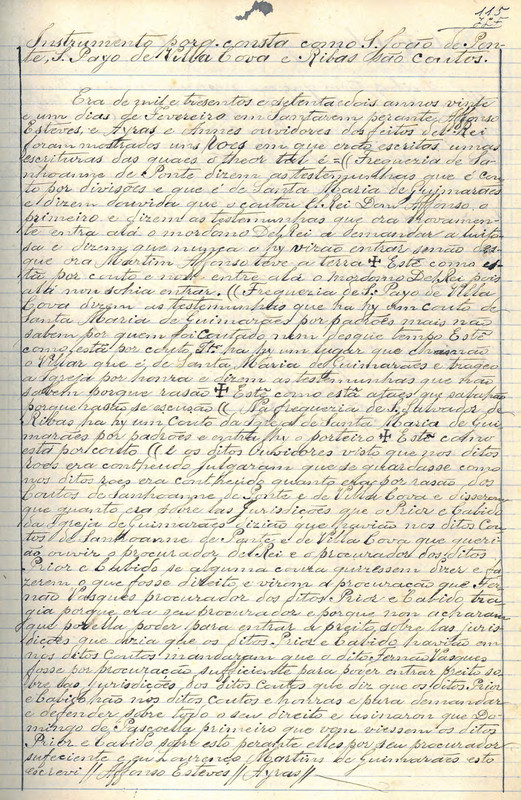 115
Instrumento para consta como S. João de Pon-
te, S. Payo de Villa Cova e Ribas são coutos.
Era de mil e tresentos e setenta e dois annos vinte
e um dias de Fevereiro em Santarem perante Affonso
Estêves, e Ayras e Annes ouvidores dos feitos del Rei
foram mostrados uns roes em que erão escritas umas
escrituras das quaes o theor tal é = (( Freguezia de Sa-
nhoanne de Ponte dizem as testemunhas que é cou-
to por divisões e que é de Santa Maria de Guimarães
e dizem douvida que o coutou El Rei Dom Affonso, o
primeiro e dizem as testemunhas que ora novamen-
te entra alá o mordomo Del Rei a demandar a
da e dizem que nunca o hy virão entrar senão des
que ora Martim Affonso teve a terra ✠ Esté como es-
tá por couto e non entre alá o mordomo Del Rei pois
alá non sohia entrar. (( Freguezia de S. Payo de Villa
Cova dizem as testemunhas que ha hy um couto de
Santa Maria de Guimarães por padrões mais não
sabem por quem foi coutado nem desque tempo Esté
como está por couto It. ha hy um lugar que chamão
o Villar que é de Santa Maria de Guimarães e trageo
a Igreja por honra e dizem as testemunhas que não
sabem porque rasão ✠ Esté como está ataes que saibão
porque rasão se escusão (( Na freguezia de S. Salvador de
Ribas ha hy um Couto da Igreja de Santa Maria de Gui-
marães por padrões e entra hy o porteiro ✠ Esté como
está por couto (( E os ditos ouvidores visto que nos ditos
roes era contheudo julgaram que se guardasse como
nos ditos roes era contheudo quanto era por rasão dos
Coutos de Sanhoanne de Ponte e de Villa Cova e disseram
que quanto era sobre las Jurisdições que o Prior e Cabido
da Igreja de Guimarães dizião que havião nos ditos Cou-
tos de Sanhoanne de Ponte e de Villa Cova que queri-
ão ouvir o procurador del Rei e o procurador dos ditos
Prior e Cabido se alguma coura quizessem dizer e fa-
zerem o que fosse direito e virom a procuração que Fer-
não Vasques procurador dos ditos Prior e Cabido tra-
gia porque era seu procurador e porque non acharam
que por ella poder para entrar a preito sobre las juris-
dições que dizia que os ditos Prior e Cabido havião em
nos ditos Coutos mandaram que o dito Fernão Vasques
fosse por procuração sufficiente para poder entrar preito so-
bre las Jurisdições dos ditos Coutos que diz que os ditos Prior
e Cabido hão nos ditos coutos e honras e pera demandar
e defender sobre todo o seu direito e asinaron que Do-
mingo de Pascoella primeiro que vem viessem os ditos
Prior e Cabido sobre esto perante elles por seu procurador
sufeciente e eu Lourenço Martins de Guimarães esto
escrevi // Affonso Estêves // Ayras //